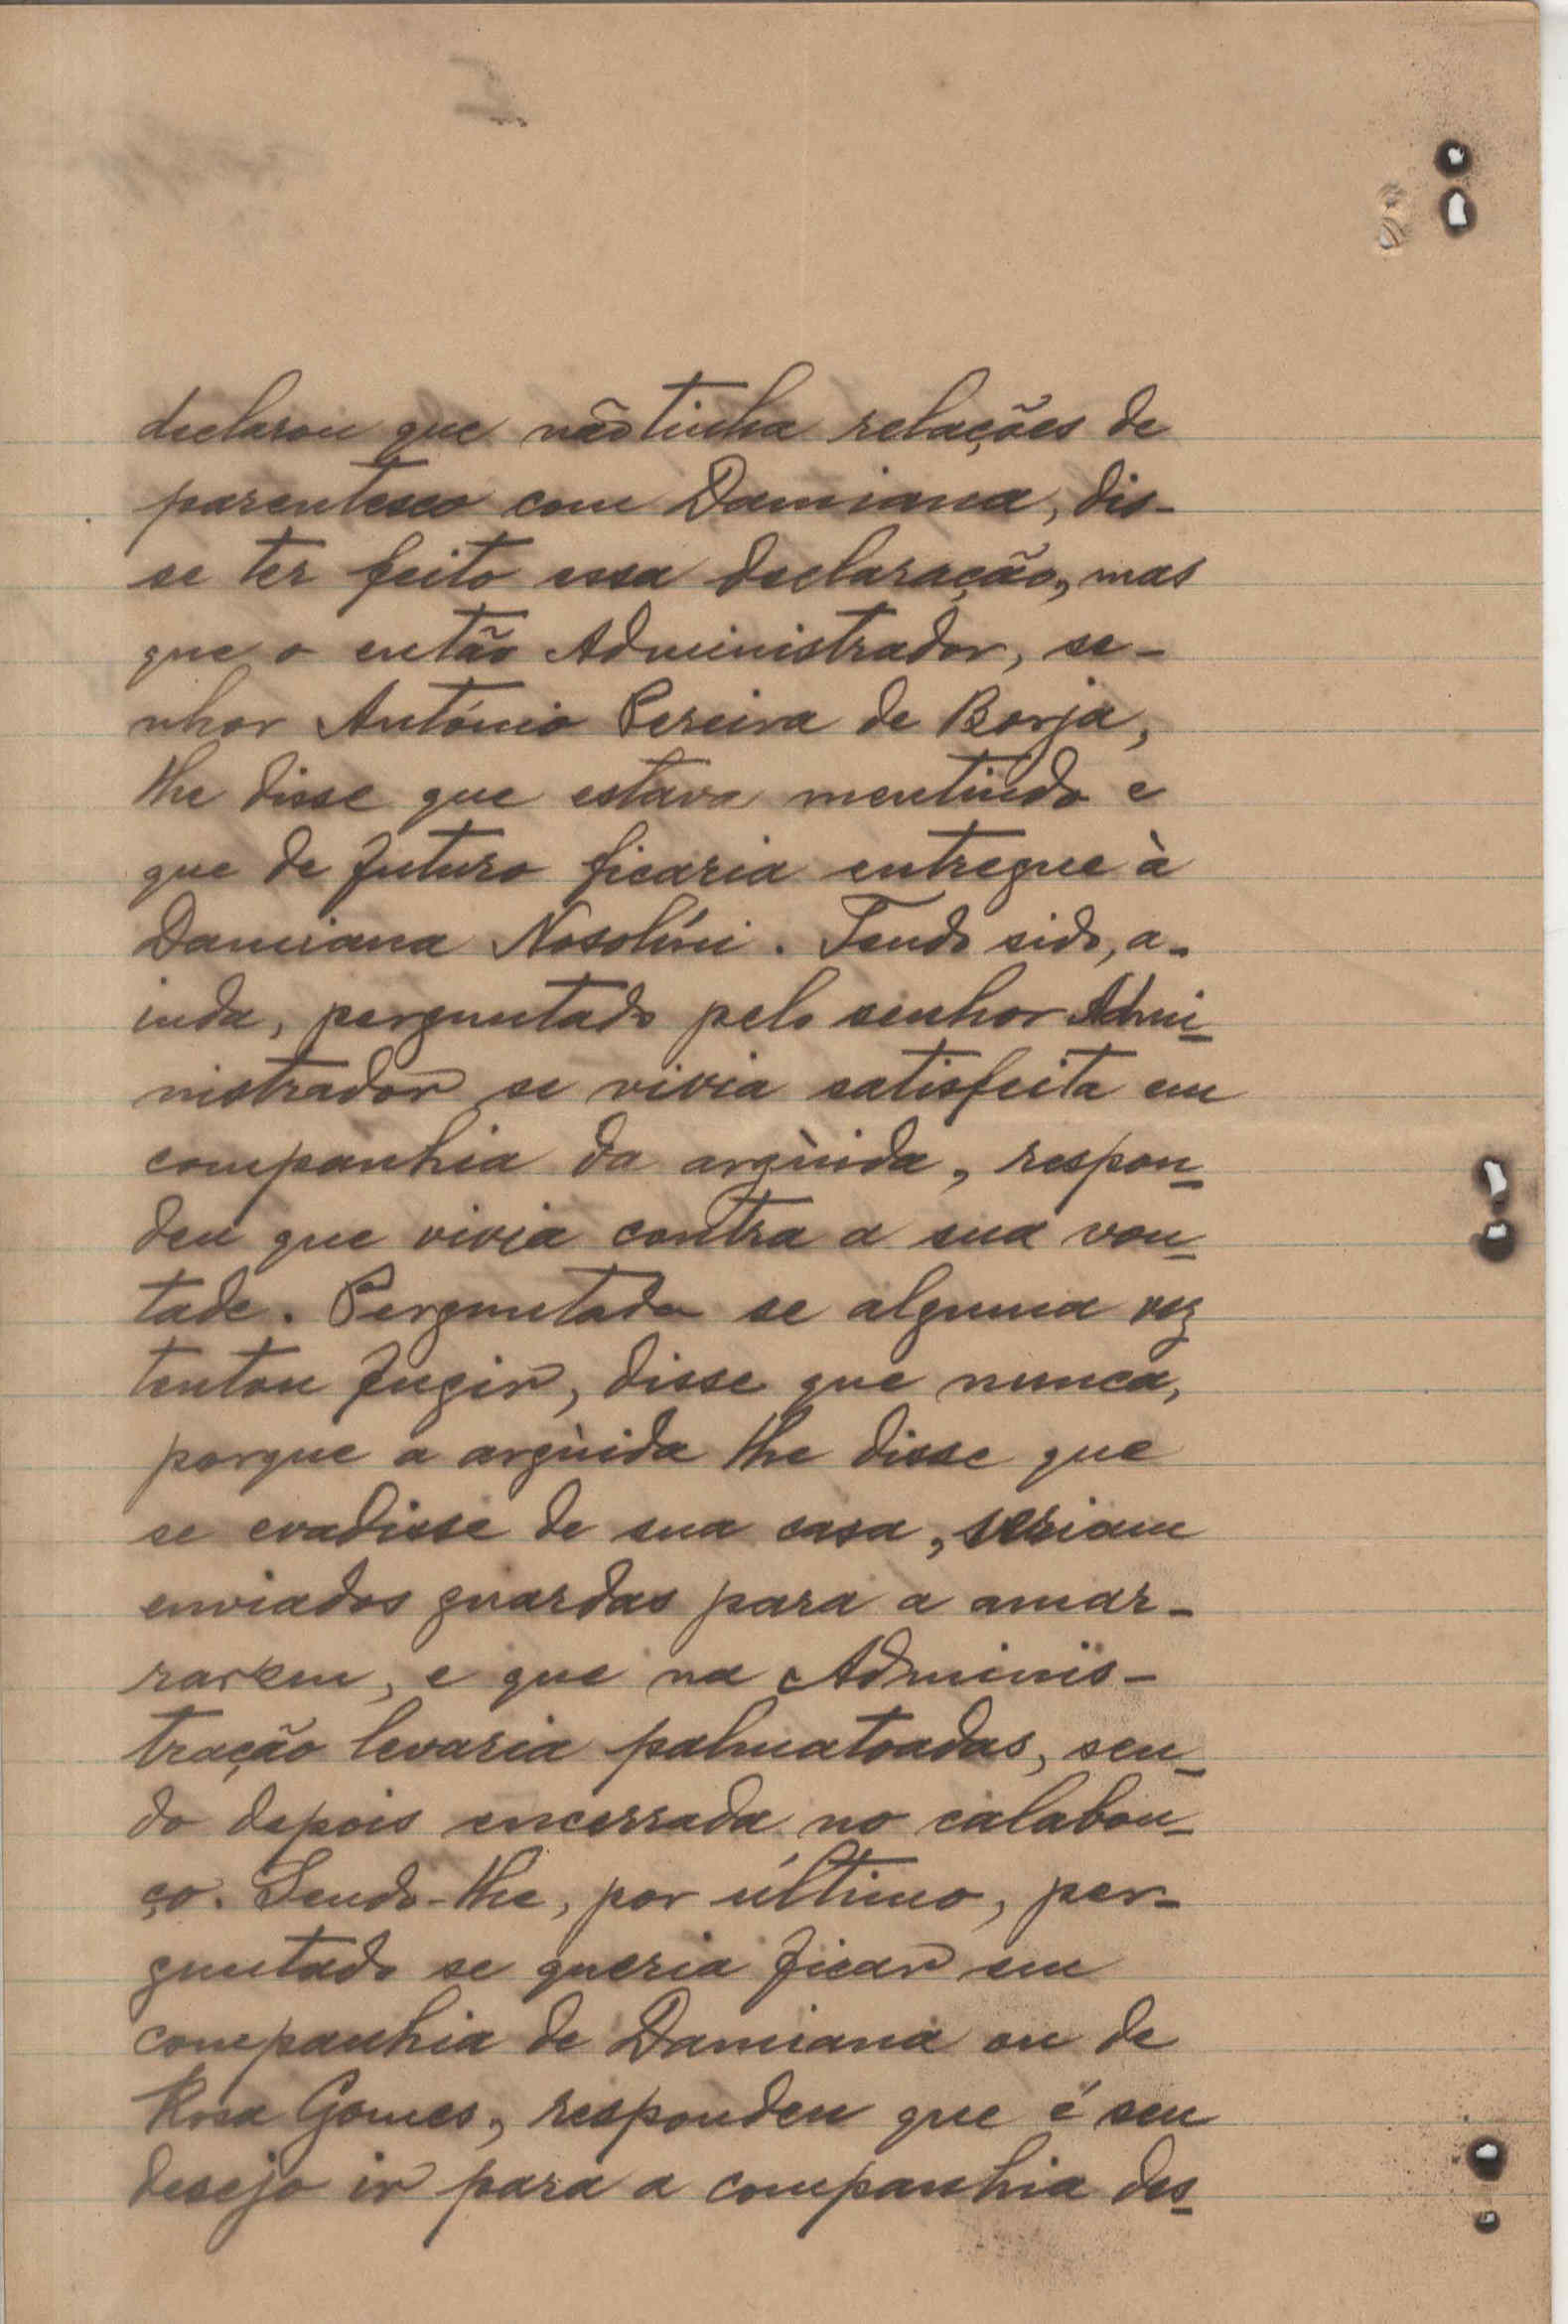 declarou que não tinha relações de
parentesco com Damiana, dis-
se ter feito essa declaração, mas
que o então Administrador, se-
nhor António Pereira de Borja,
lhe disse que estava mentindo e
que de futuro ficaria entregue à
Damiana Nosolíni. Tendo sido, a-
inda, perguntado pelo senhor Admi-
nistrador se vivia satisfeita em
companhia da argùida, respon-
deu que vivia contra a sua von-
tade. Perguntada se alguma vez
tentou fugir, disse que nunca,
porque a argùida lhe disse que
se evadisse de sua casa, seriam
enviados guardas para a amar-
rarem, e que na Adminis-
tração levaria palmatoadas, sen-
do depois encerrada no calabou-
ço. Sendo-lhe, por último, per-
guntado se queria ficar em
companhia de Damiana ou de
Rosa Gomes, respondeu que é seu
desejo ir para a companhia des-